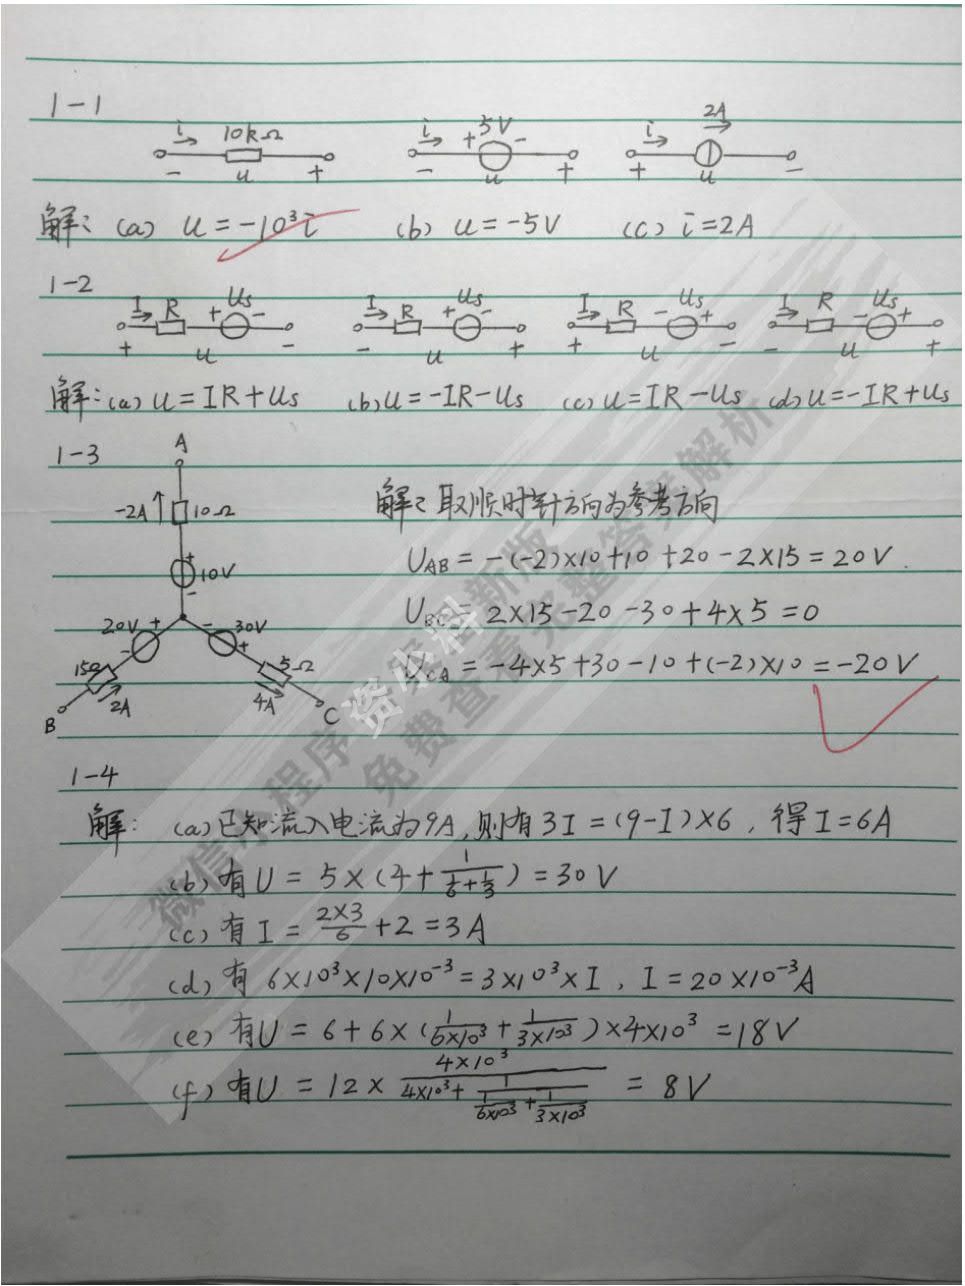 1-1
i 10kΩ - u + i + 5V - - u + i 2A + u -
解: (a) u = -10³i (b) u = -5V (c) i = 2A
1-2
I R + Us - + u - I R + Us - - u + I R - Us + + u - I R - Us + - u +
解: (a) u = IR + Us (b) u = -IR - Us (c) u = IR - Us (d) u = -IR + Us
1-3
A
-2A 10Ω
+ 10V -
20V + - - 30V +
15Ω 2A 5Ω 4A
B C
解: 取顺时针方向为参考方向
U_AB = -(-2)×10 + 10 + 20 - 2×15 = 20V
U_BC = 2×15 - 20 - 30 + 4×5 = 0
U_CA = -4×5 + 30 - 10 + (-2)×10 = -20V
1-4
解: (a) 已知流入电流为9A, 则有 3I = (9-I)×6, 得 I = 6A
(b) 有 U = 5×(4 + 1/(1/6 + 1/3)) = 30V
(c) 有 I = 2×3/6 + 2 = 3A
(d) 有 6×10³×10×10⁻³ = 3×10³×I, I = 20×10⁻³A
(e) 有U = 6 + 6×(1/(6×10³) + 1/(3×10³))×4×10³ = 18V
(f) 有U = 12 × 4×10³/(4×10³ + 1/(1/(6×10³) + 1/(3×10³))) = 8V
微信小程序 资小料
免费查看完整答案解析